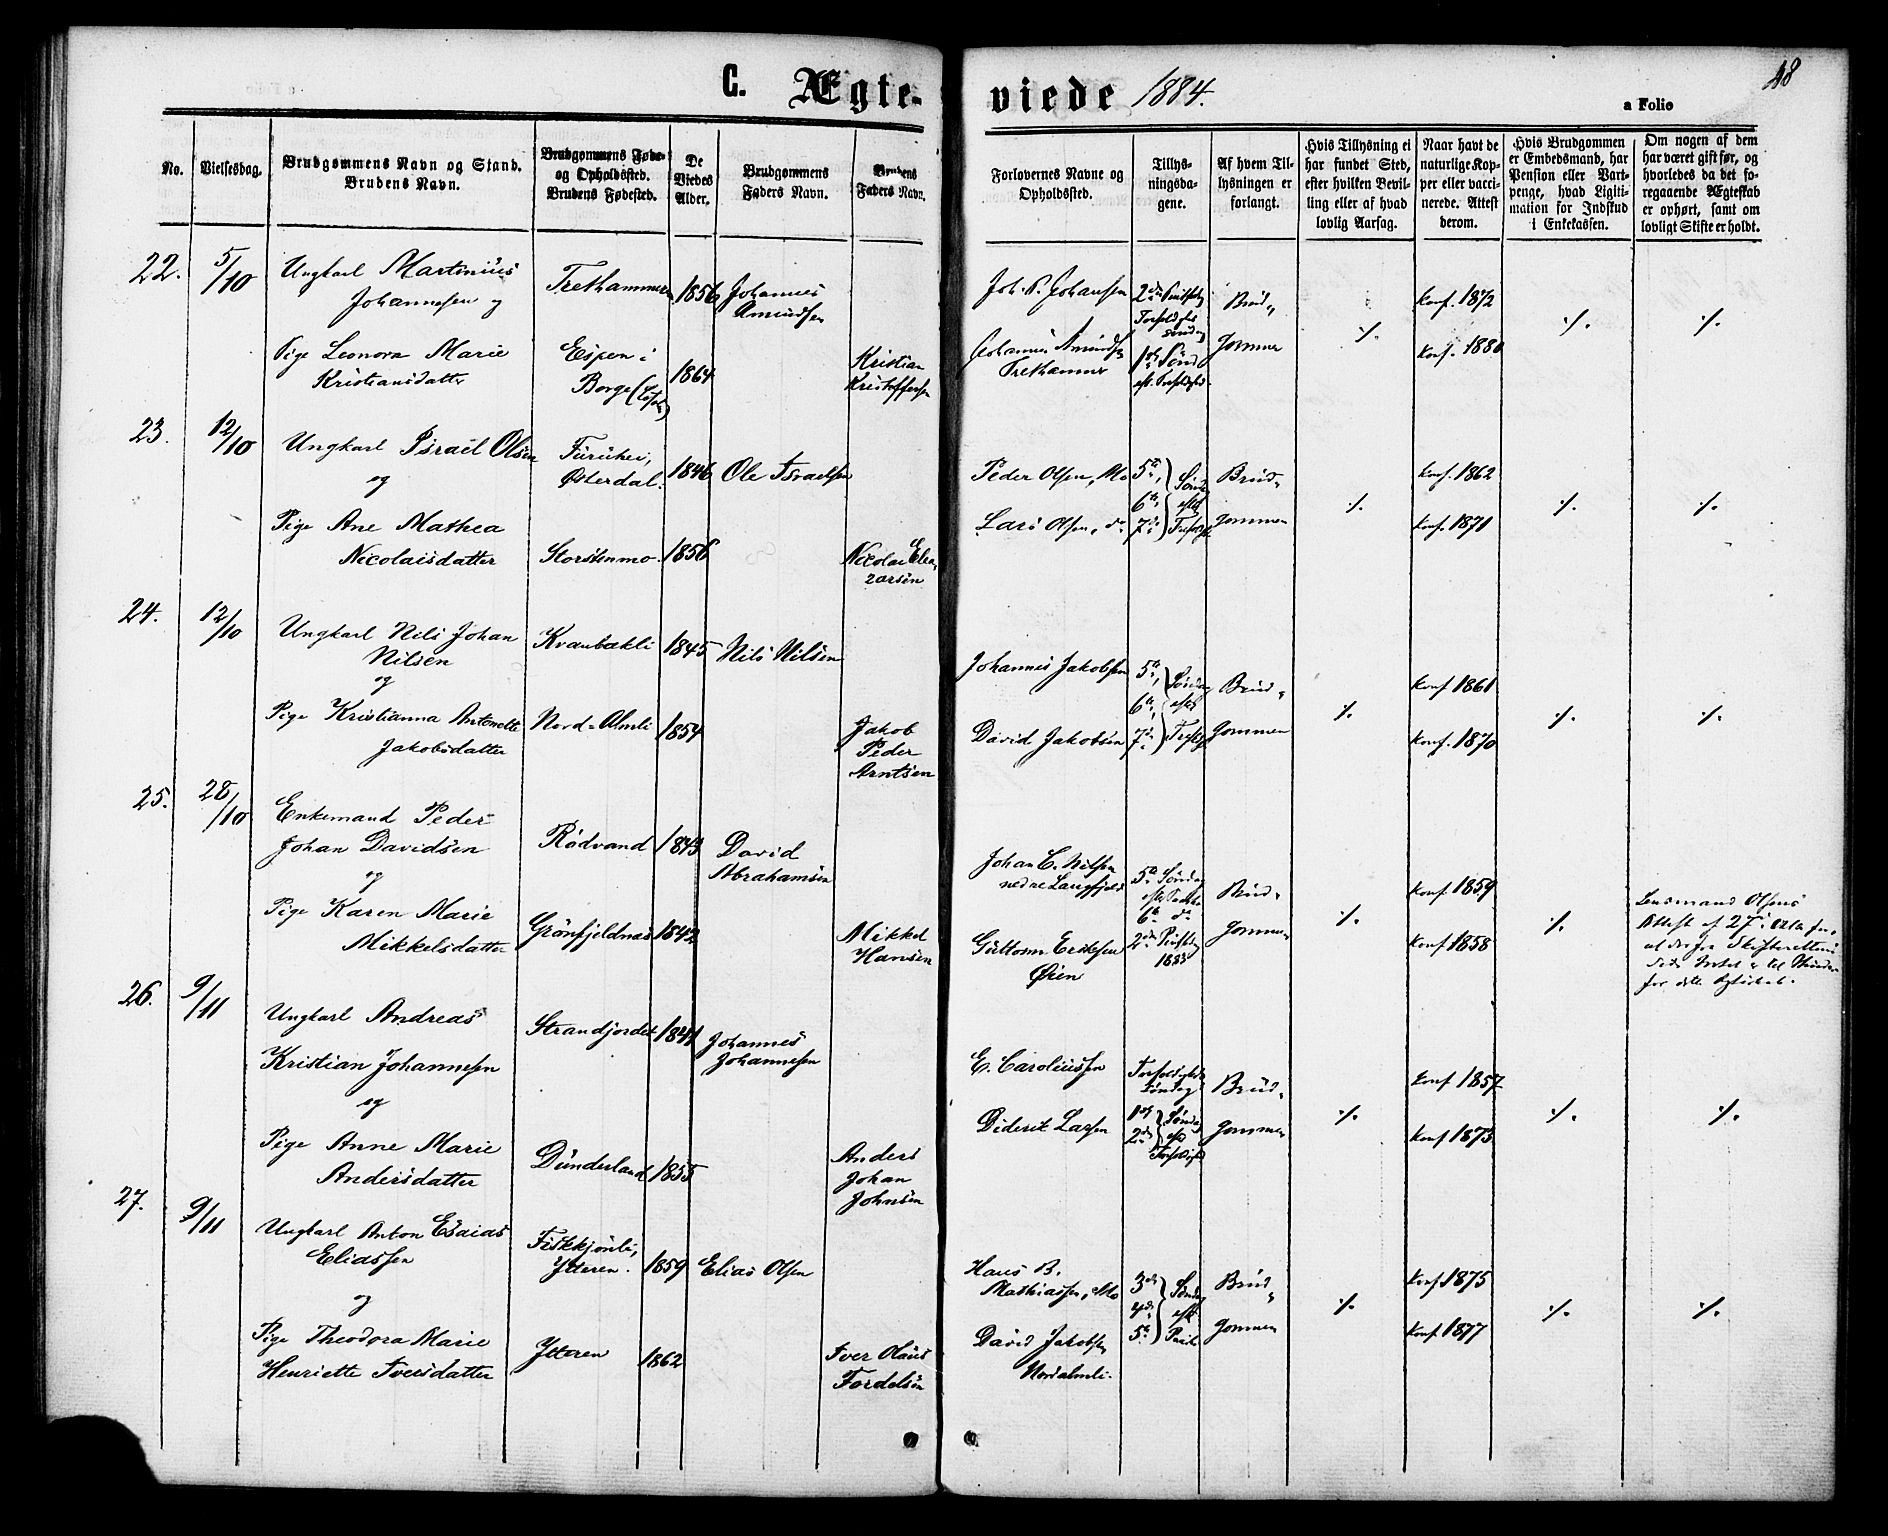 C. Ægteviede 1884.
48
a Folio
No.
Vielsesdag.
Brudgommens Navn og Stand.
Brudens Navn.
Brudgommens Føde-
og Opholdssted.
Brudens Fødested.
De
Viedes
Alder.
Brudgommens
Faders Navn.
Brudens
Faders Navn.
Forlovernes Navne og
Opholdssted.
Tillys-
ningsda-
gene.
Af hvem Til-
lysningen er
forlangt.
Hvis Tillysning ei
har fundet Sted,
efter hvilken Bevil-
ling eller af hvad
lovlig Aarsag.
Naar havt de
naturlige Kop-
per eller vacci-
nerede. Attest
derom.
Hvis Brudgommen
er Embedsmand, har
Pension eller Vart-
penge, hvad Ligiti-
mation for Indskud
i Enkekassen.
Om nogen af dem
har været gift før, og
hvorledes da det fo-
regaaende Ægteskab
er ophørt, samt om
lovligt Skifte er holdt.
22.
5/10
Ungkarl Martinius
Johannesen og
Trethammeren
1856
Johannes
Amundsen
Pige Leonora Marie
Kristiansdatter
Espen i
Borge (Lofoten)
1864
Kristian
Kristoffersen
Joh. P. Johansen
Johannes Amundsen
Trethammer
Brud-
Gommen
·/·
Konf. 1872
Konf. 1880
·/·
·/·
23.
12/10
Ungkarl Israel Olsen
og
Furuhei,
Østerdal.
1846
Ole Israelsen
Pige Ane Mathea
Nicolaisdatter
Storstenmo
1856
Nicolai Elea-
zarsen
Peder Olsen, Mo
Lars Olsen, do
5te,
6te
7de
Brud-
Gommen
·/·
Konf. 1862
Konf. 1871
·/·
·/·
24.
12/10
Ungkarl Nils Johan
Nilsen
og
Kvanbækli
1845
Nils Nilsen
Pige Kristianna Antonette
Jakobsdatter
Nord-Almli
1854
Jakob
Peder
Arntsen
Johannes Jakobsen
David Jakobsen
5te,
6te,
7de
Brud-
Gommen
·/·
Konf 1861
Konf. 1870
·/·
·/·
25.
28/10
Enkemand Peder
Johan Davidsen
og
Rödvand
1843
David
Abrahamsen
Pige Karen Marie
Mikkelsdatter
Grönfjeldnæs
1842
Mikkel
Hansen
Johan C. Nilsen
nedre Langfjeld
Guttorm Eriksen
Øien
Brud-
Gommen
·/·
Konf. 1859
Konf 1858
·/·
Lensmand Olsens
Attest af 27de
26.
9/11
Ungkarl Andreas
Kristian Johannesen
og
Strandjordet
1841
Johannes
Johannesen
Pige Anne Marie
Andersdatter
Dunderland
1855
Anders
Johan
Johnsen
E. Caroliussen
Diderik Larsen
Brud-
Gommen
·/·
Konf 1857
Konf 1873
·/·
·/·
27.
9/11
Ungkarl Anton Esaias
Eliassen
og
Fiskkjönli,
Ytteren.
1859
Elias Olsen
Pige Theodora Marie
Henriette Iversdatter
Ytteren
1862
Iver Olaus
Fordelsen
Hans B.
Mathiassen, Mo
David Jakobsen
Nordalmli.
3de
4de
5te
Brud-
Gommen
·/·
Konf 1875
Konf. 1877
·/·
·/·